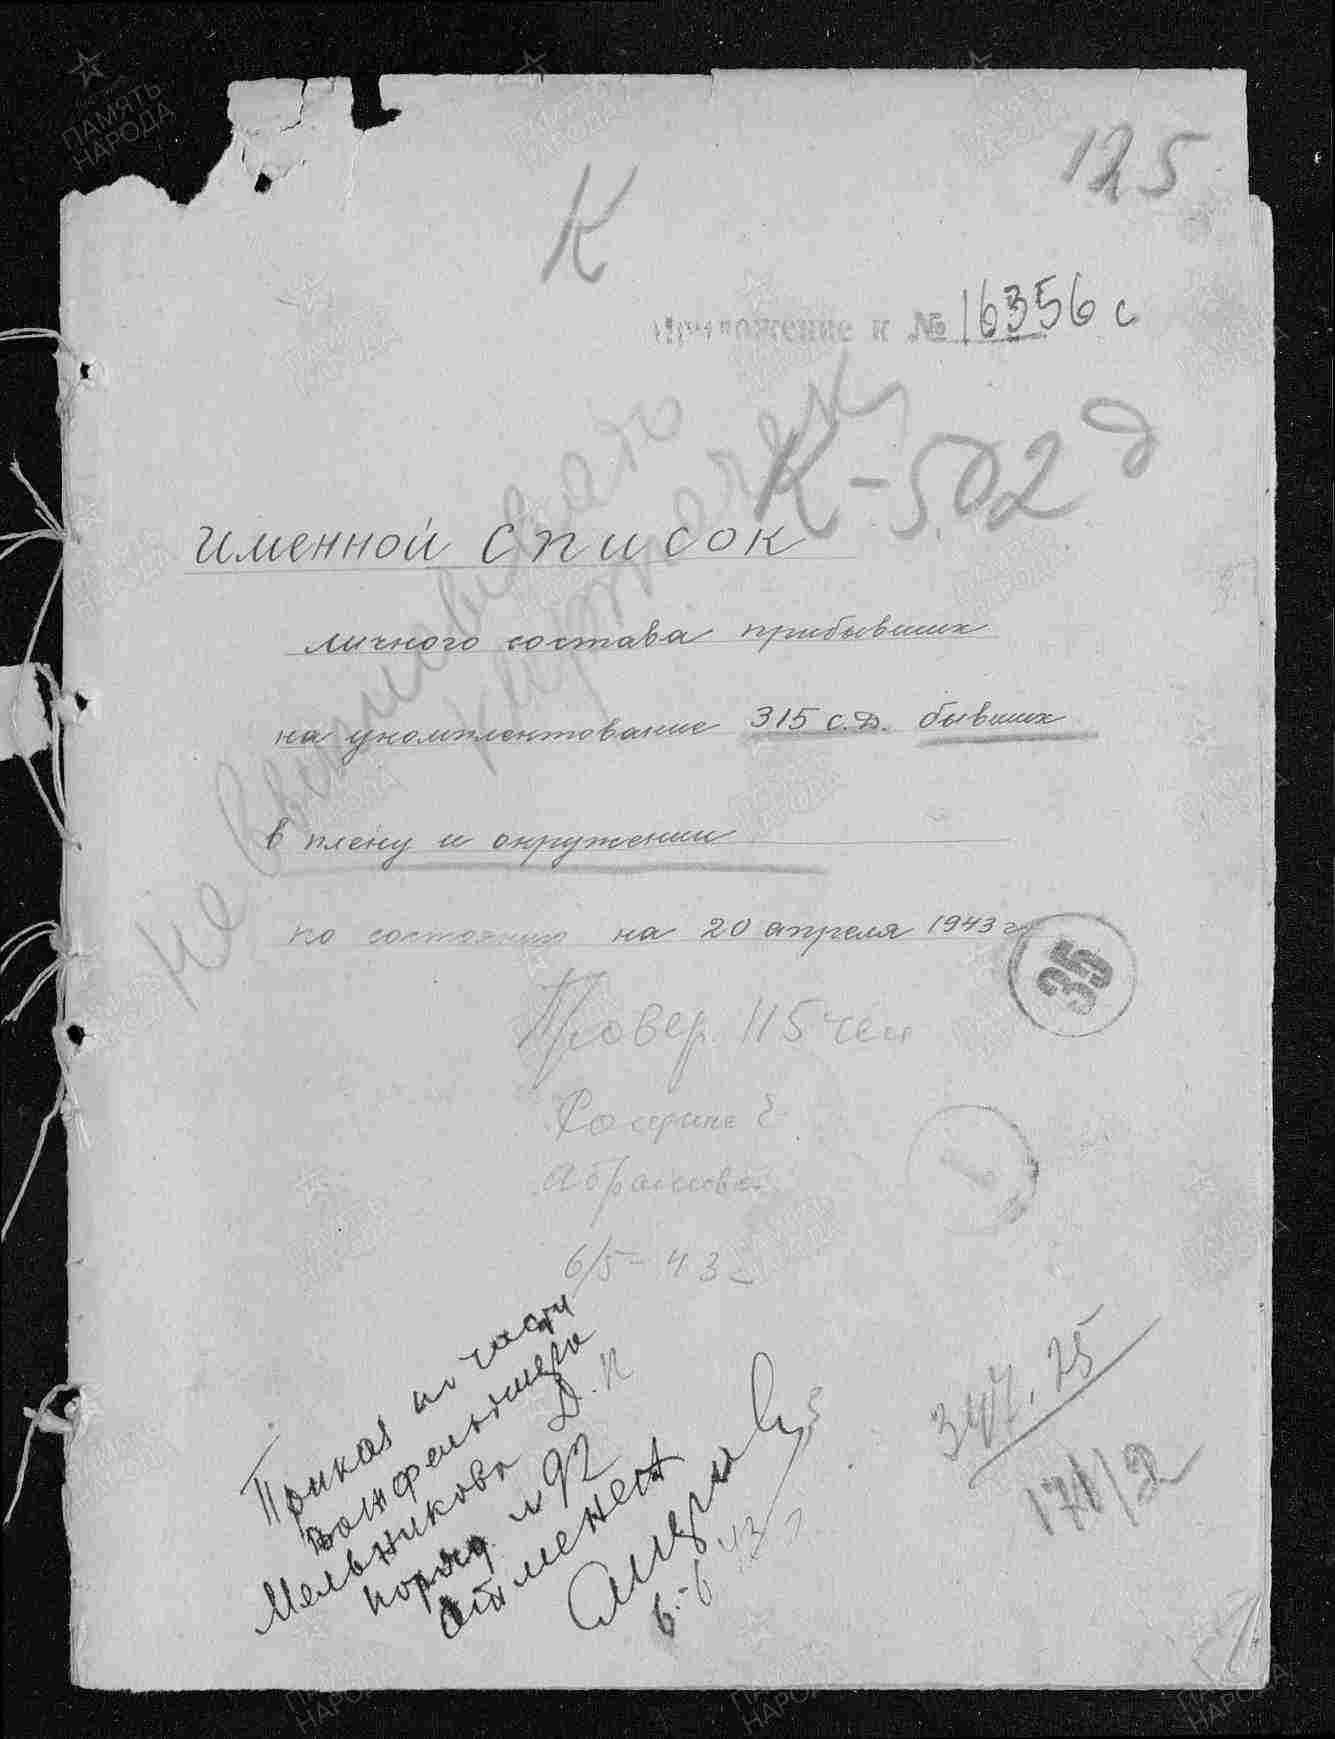 125
К
Приложение к № 16356 с
К-502 д
Не выписывать
карточек
Именной список
личного состава прибывших
на укомплектование 315 с.д. бывших
в плену и окружении
по состоянию на 20 апреля 1943 г.
35
Провер. 115 чел
6/5-43 г
Приказ по части
военфельдшера
Мельникова Д.П
поряд. № 92
отменен
6-6 43 г
347.25
171/2
ПАМЯТЬ
НАРОДА